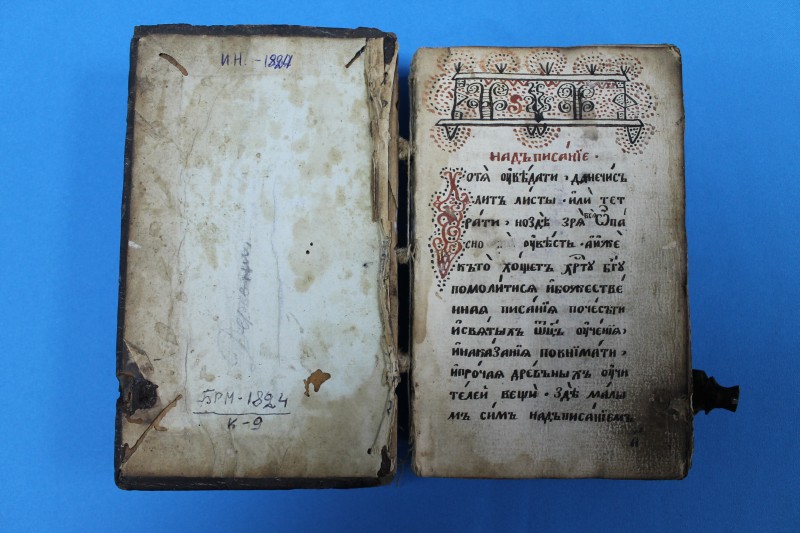 ИН. -1824
БРМ-1824
К-9
НАДЪПИСА́НЇЕ ·
Хотѧ̀ ᲂу҆вѣ́дати , да нечисъ
литъ листы̀ · и҆лѝ тет
ра́ти , но здѣ̀ зрѧ̀ ѡ҆па́
сно ᲂу҆вѣ́сть · а҆́ще
къто̀ хо́щетъ хр҃тꙋ̀ бг҃ꙋ
помоли́тисѧ и҆ бож́естве
ннаѧ писа́нїѧ
и҆ свѧты́хъ ѿц҃ъ ᲂу҆че́нїѧ ,
и҆ наказа́нїѧ повнїма́ти ,
и҆ про́чаѧ дре́вьныхъ ᲂу҆чи
те́лей ве́щи · здѣ̀ ма́лы
мъ си́мъ надъписа́нїемъ